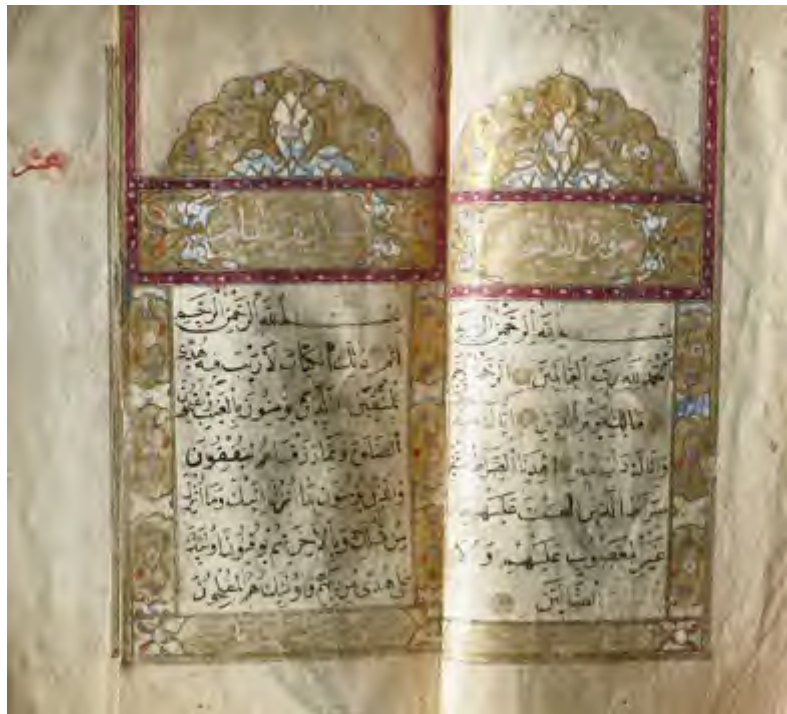 سورة
بسم الله الرحمن
الحمد لله رب العالمين الرحمن
مالك يوم الدين اياك
واياك اهدنا الصراط
صراط الذين انعمت عليهم
غير المغضوب عليهم ولا
الضالين
بسم الله الرحمن الرحيم
الم ذلك الكتاب لا ريب فيه هدى
للمتقين الذين يؤمنون بالغيب ويقيمون
الصلوة ومما رزقناهم ينفقون
والذين يؤمنون بما انزل اليك وما انزل
من قبلك وبالاخرة هم يوقنون اولئك
على هدى من ربهم واولئك هم المفلحون
عشر